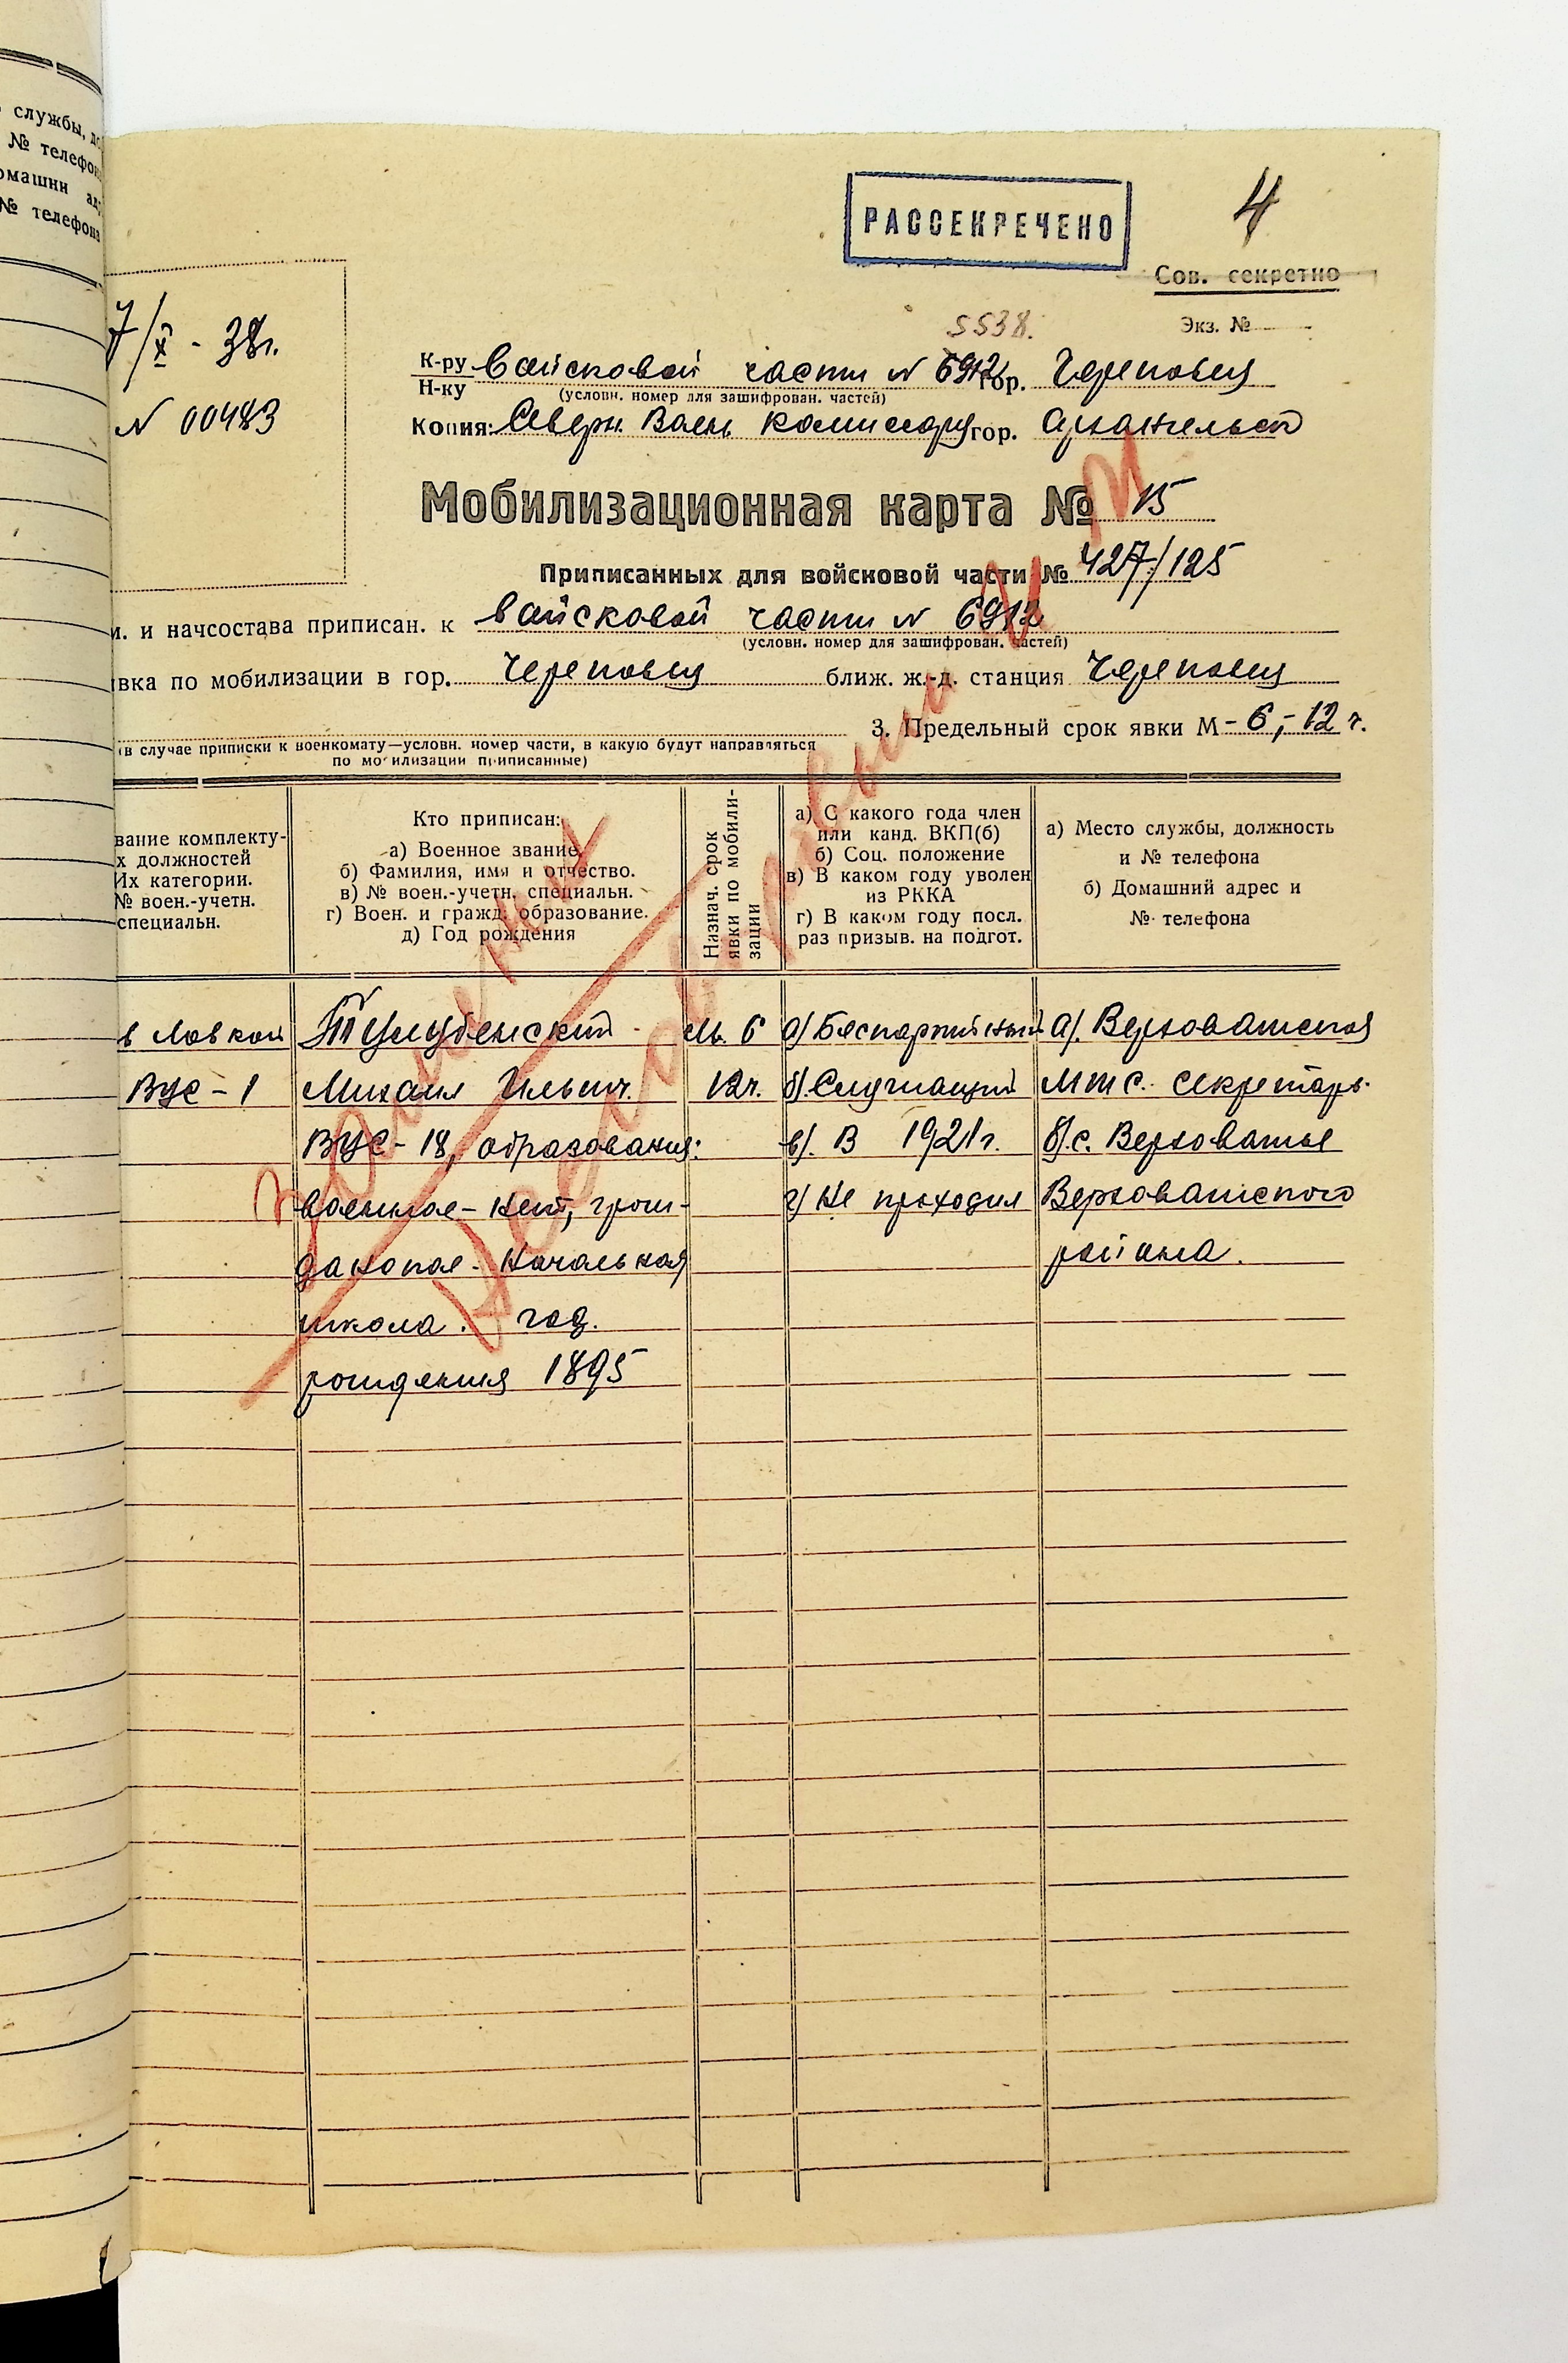 службы, до
№ телефон
омашнн ад
№ телефона
РАССЕКРЕЧЕНО
4
Сов. секретно
Экз. №
5538.
7/X - 38г.
N 00483
К-ру
Н-ку
войсковой части N 6912 гор. Череповец
(условн. номер для зашифрован. частей)
Копия: Северн. Воен. Комиссару гор. Архангельск
Мобилизационная карта № 15
Приписанных для войсковой части № 427/125
м. и начсостава приписан. к войсковой части N 6912
(условн. номер для зашифрован. частей)
вка по мобилизации в гор. Череповец ближ. ж.-д. станция Череповец
3. Предельный срок явки М - 6, - 12 ч.
(в случае приписки к военкомату—условн. номер части, в какую будут направляться
по мобилизации приписанные)
вание комплекту-
х должностей
Их категории.
№ воен.-учетн.
специальн.
Кто приписан:
а) Военное звание
б) Фамилия, имя и отчество.
в) № воен.-учетн. специальн.
г) Воен. и гражд. образование.
д) Год рождения
Назнач. срок
явки по мобили-
зации
а) С какого года член
или канд. ВКП(б)
б) Соц. положение
в) В каком году уволен
из РККА
г) В каком году посл.
раз призыв. на подгот.
а) Место службы, должность
и № телефона
б) Домашний адрес и
№ телефона
ВУС - 1
Михаил Ильич.
ВУС - 18, образования:
военное - нет, граж-
данское - Начальная
школа. год.
рождения 1895
М. 6
12ч.
а) Беспартийный
б). Служащий
в). В 1921 г.
г) Не проходил
а). Верховажская
МТС. секретарь.
б) с. Верховажье
Верховажского
района.